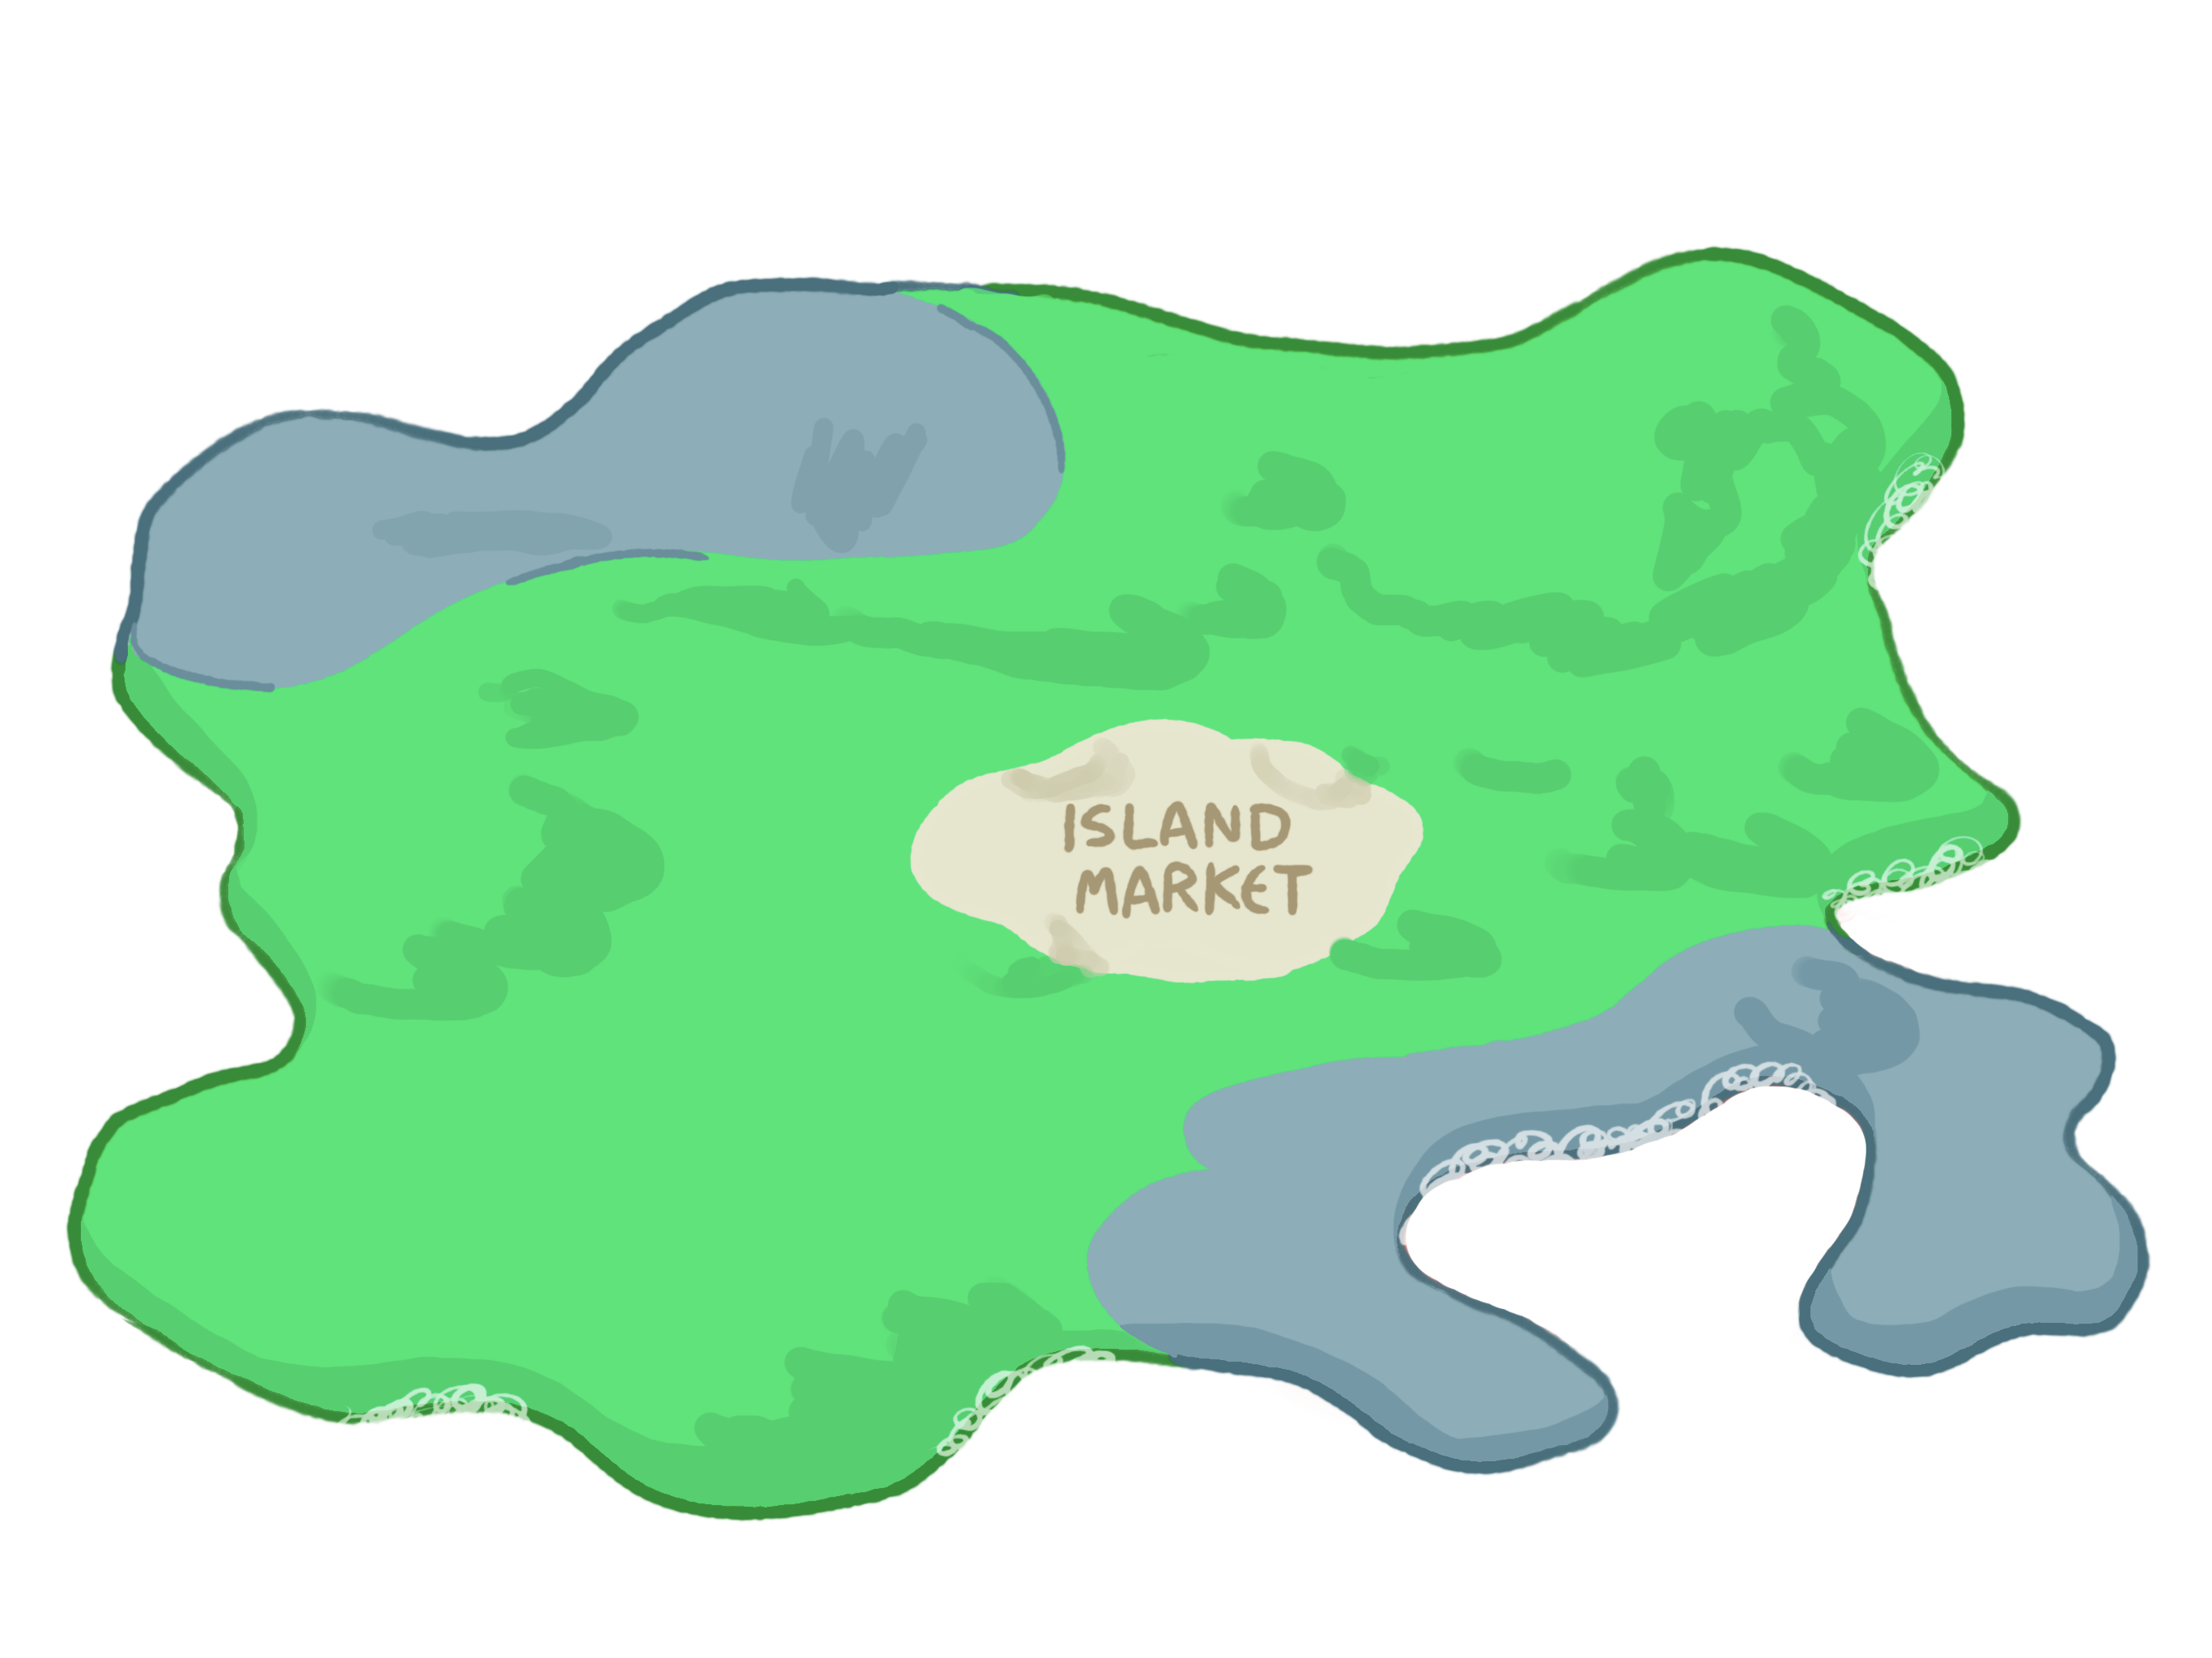 ISLAND
MARKET